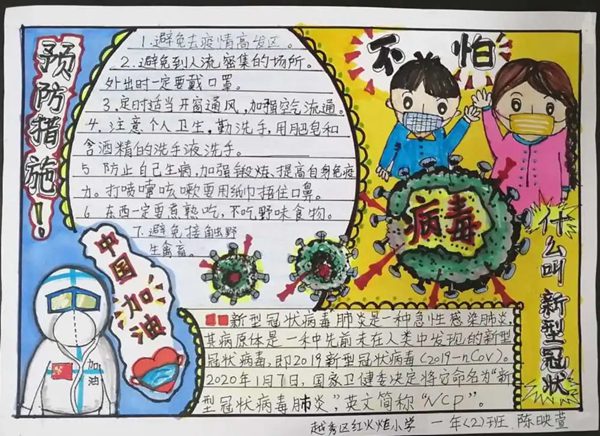 预防措施!
1.避免去疫情高发区。
2.避免到人流密集的场所。
外出时一定要戴口罩。
3.定时适当开窗通风,加强空气流通。
4.注意个人卫生,勤洗手,用肥皂和
含酒精的洗手液洗手。
5 防止自己生病,加强锻炼,提高自身免疫
力。打喷嚏咳嗽要用纸巾捂住口鼻。
6 东西一定要煮熟吃,不吃野味食物。
7.避免接触野
生禽畜。
不怕
病毒
什么叫新型冠状
中国加油
加油
新型冠状病毒肺炎是一种急性感染肺炎,
其病原体是一种先前未在人类中发现的新型
冠状病毒,即2019新型冠状病毒(2019-nCoV)。
2020年1月7日,国家卫健委决定将它命名为“新
型冠状病毒肺炎”,英文简称“NCP”。
越秀区红火炬小学 一年(2)班 陈映萱